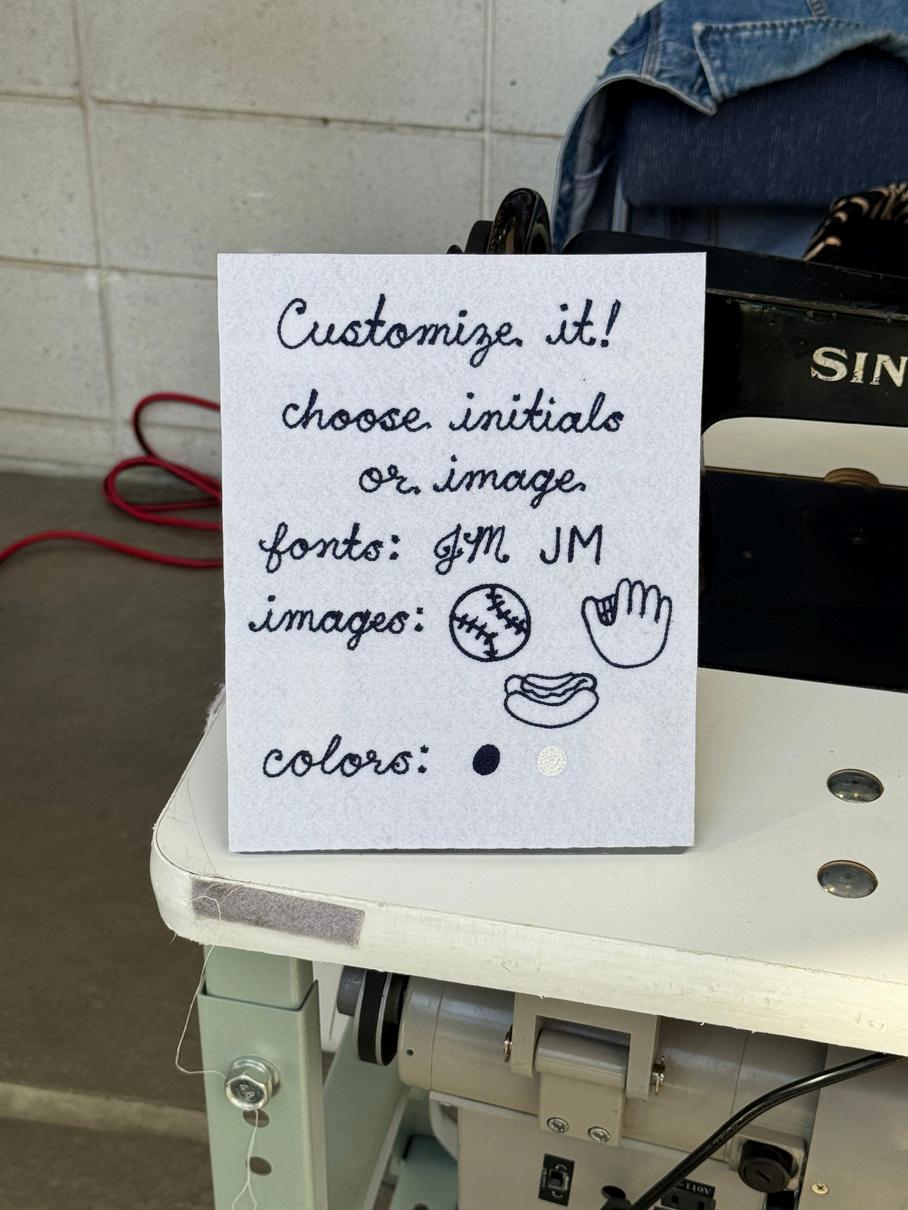 Customize it!
choose initials
or image
fonts: JM JM
images:
colors:
SIN
110V